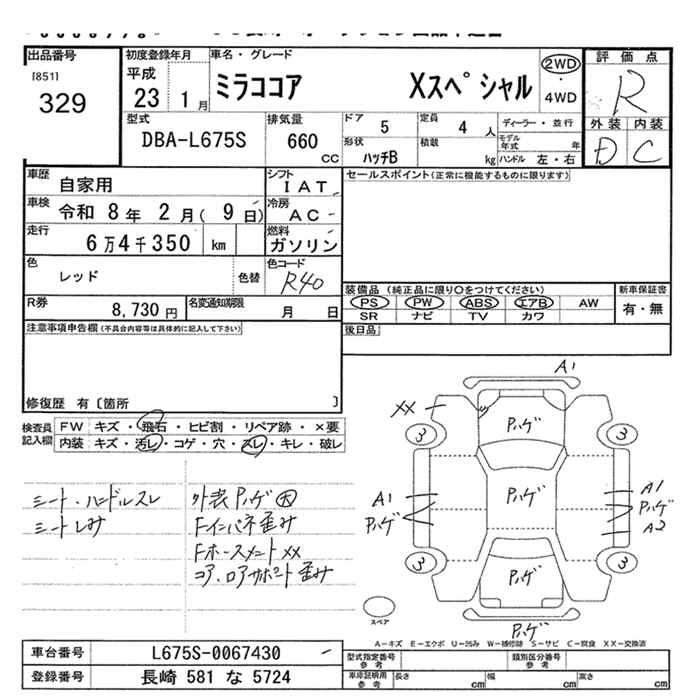 出品番号
[851]
329
初度登録年月
平成
23 1月
車名・グレード
ミラココア Xスペシャル
2WD
・
4WD
評価点
R
外装 内装
D C
型式
DBA-L675S
排気量
660 CC
ドア 5
形状 ハッチB
定員 4 人
積載 kg
ディーラー・並行
モデル年式 年
ハンドル 左・右
車歴 自家用
車検 令和 8年 2月( 9日)
走行 6万4千350 km
シフト IAT
冷房 AC
燃料 ガソリン
色 レッド 色替
色コード R40
R券 8,730円
名変通知期限 月 日
セールスポイント(正常に機能するものに限ります)
装備品 (純正品に限り○をつけてください)
PS PW ABS エアB AW
SR ナビ TV カワ
新車保証書
有・無
後日品
注意事項申告欄(不具合内容等は具体的に記入して下さい)
修復歴 有〔箇所 〕
検査員記入欄
FW キズ・飛石・ヒビ割・リペア跡・×要
内装 キズ・汚レ・コゲ・穴・スレ・キレ・破レ
シート・ハンドルスレ
シートしみ
外装ハゲ大
Fインパネ歪み
Fホースメントxx
コア・ロアサポート歪み
A1
XX
ハゲ
3 3
A1
ハゲ
ハゲ
A1
ハゲ
A2
3 3
ハゲ
ハゲ
スペア
A−キズ E−エクボ U−凹み W−補修跡 S−サビ C−腐食 XX−交換済
車台番号 L675S-0067430
登録番号 長崎 581 な 5724
型式指定番号
参考
類別区分番号
参考
車庫証明用
参考
長さ cm 幅 cm 高さ cm